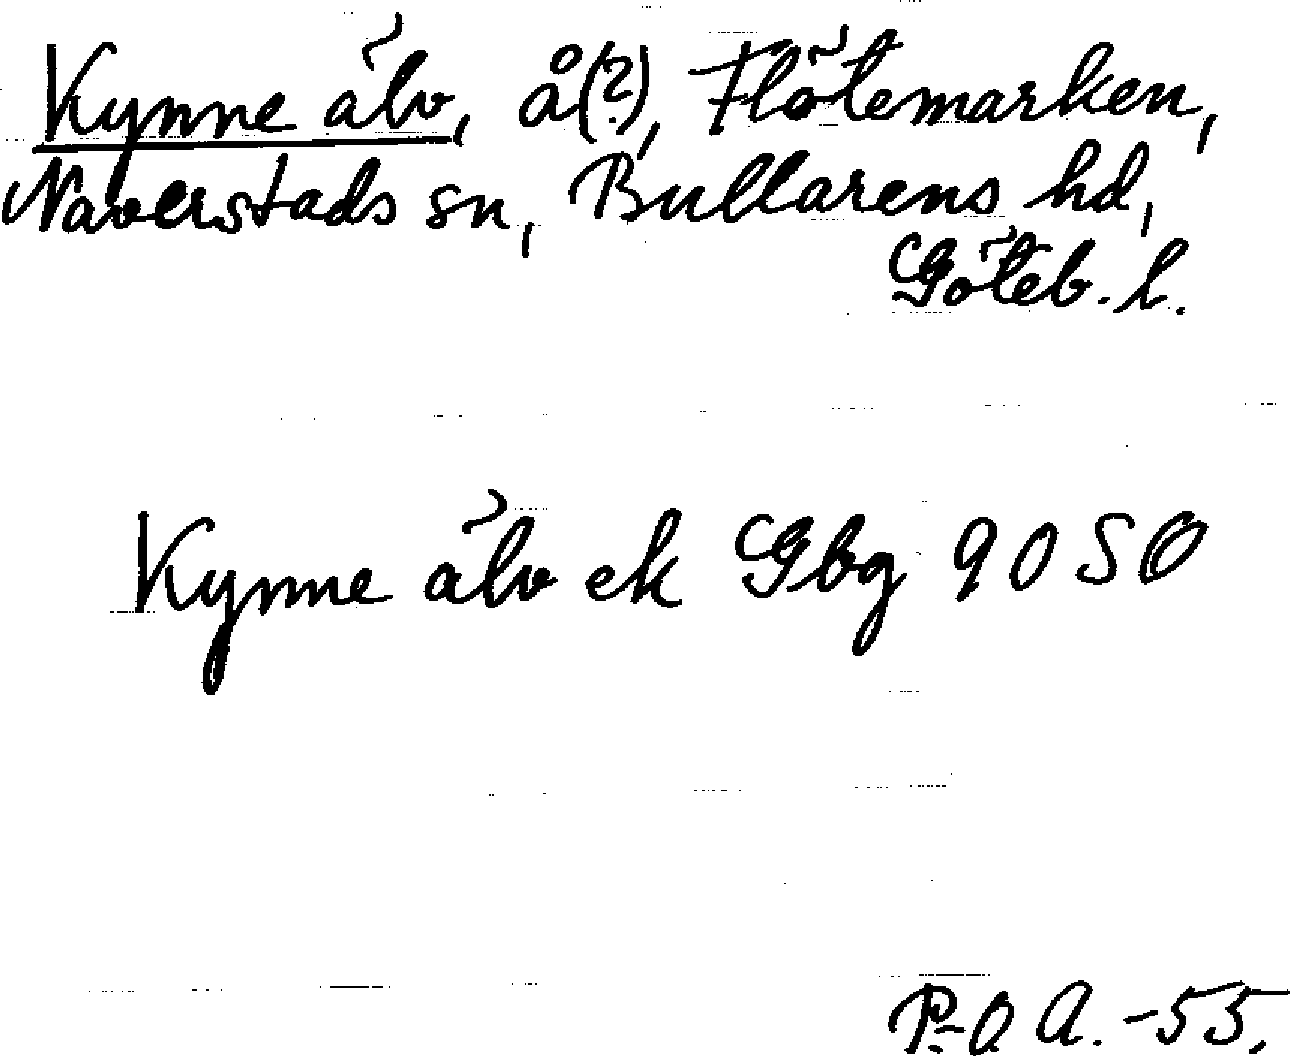 Kynne älv, å(?), Flötemarken,
Naverstads sn, Bullarens hd,
Göteb. l.
Kynne älv ek Gbg 9 0 S O
P-O A. -55.